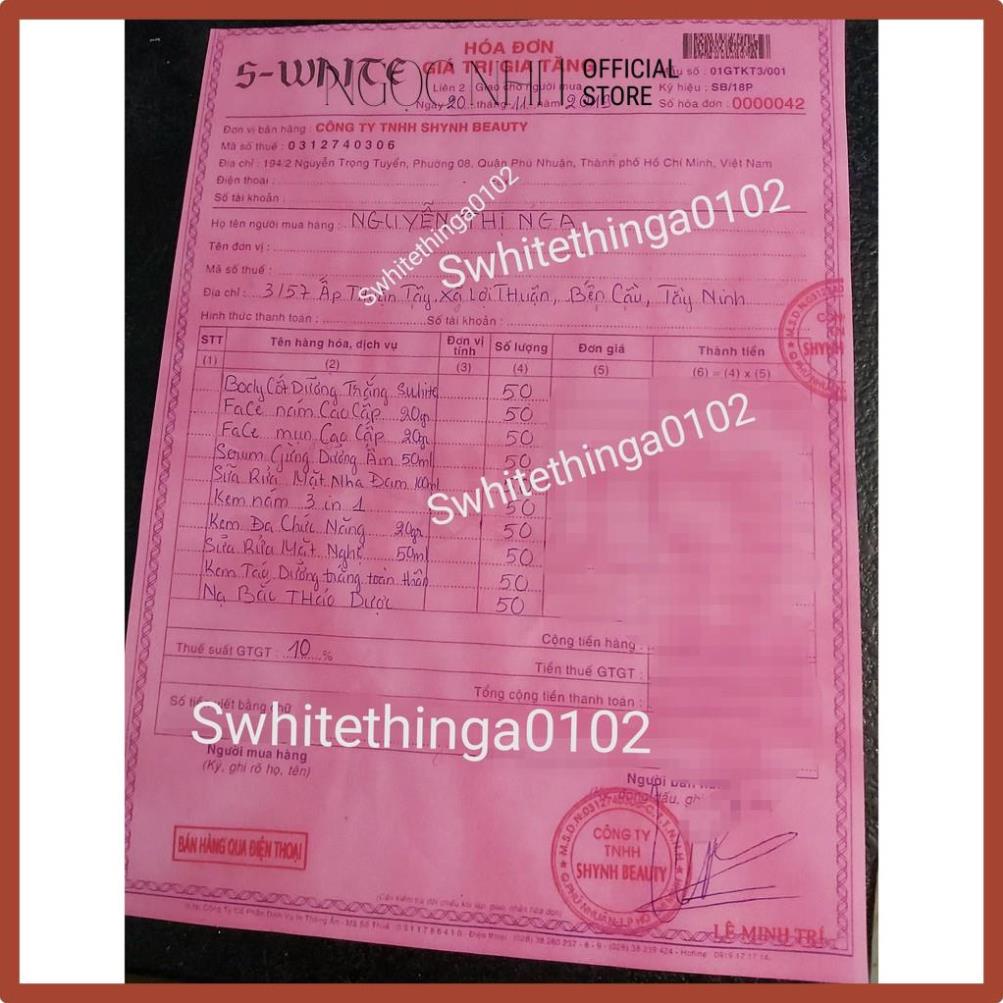 HÓA ĐƠN
S-WHITE GIÁ TRỊ GIA TĂNG
NGỌC NHII OFFICIAL STORE
Mẫu số : 01GTKT3/001
Liên 2 : Giao cho người mua
Ký hiệu : SB/18P
Ngày 20 tháng 11 năm
Số hóa đơn : 0000042
Đơn vị bán hàng : CÔNG TY TNHH SHYNH BEAUTY
Mã số thuế : 0312740306
Địa chỉ : 194/2 Nguyễn Trọng Tuyển, Phường 08, Quận Phú Nhuận, Thành phố Hồ Chí Minh, Việt Nam
Điện thoại :
Số tài khoản :
Họ tên người mua hàng : NGUYỄN THỊ NGA
Swhitethinga0102
Swhitethinga0102
Tên đơn vị :
Mã số thuế :
Địa chỉ : 3/57 Ấp Thuận Tây, Xã Lợi THuận, Bến Cầu, Tây Ninh
Hình thức thanh toán : Số tài khoản :
STT Tên hàng hóa, dịch vụ Đơn vị tính Số lượng Đơn giá Thành tiền
(1) (2) (3) (4) (5) (6) = (4) x (5)
Body Cốt Dưỡng Trắng Swhite 50
FaCe nám Cao Cấp 20gr 50
FaCe mụn Cao Cấp 20gr 50
Serum Gừng Dưỡng Ẩm 50ml 50
Sữa Rửa Mặt Nha Đam 100ml
Swhitethinga0102
Kem nám 3 in 1 50
Kem Đa Chức Năng 20gr 50
Sữa Rửa Mặt Nghệ 50ml 50
Kem Táy Dưỡng trắng toàn thân 50
Nạ Bắc THảo Dược 50
Cộng tiền hàng :
Thuế suất GTGT : 10 %
Tiền thuế GTGT :
Tổng cộng tiền thanh toán :
Số tiền viết bằng chữ
Swhitethinga0102
Người mua hàng
(Ký, ghi rõ họ, tên)
Người bán
đóng dấu, ghi
BÁN HÀNG QUA ĐIỆN THOẠI
M.S.D.N:0312740306-C.T.T.N.H.H
CÔNG TY
TNHH
SHYNH BEAUTY
Q.PHÚ NHUẬN-T.P HỒ
LÊ MINH TRÍ
(Cần kiểm tra đối chiếu khi lập, giao, nhận hóa đơn)